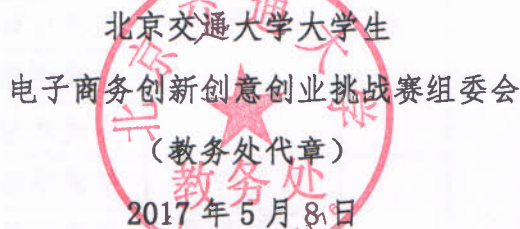 北京交通大学大学生
电子商务创新创意创业挑战赛组委会
（教务处代章）
2017年5月8日
北京交通大学
教务处